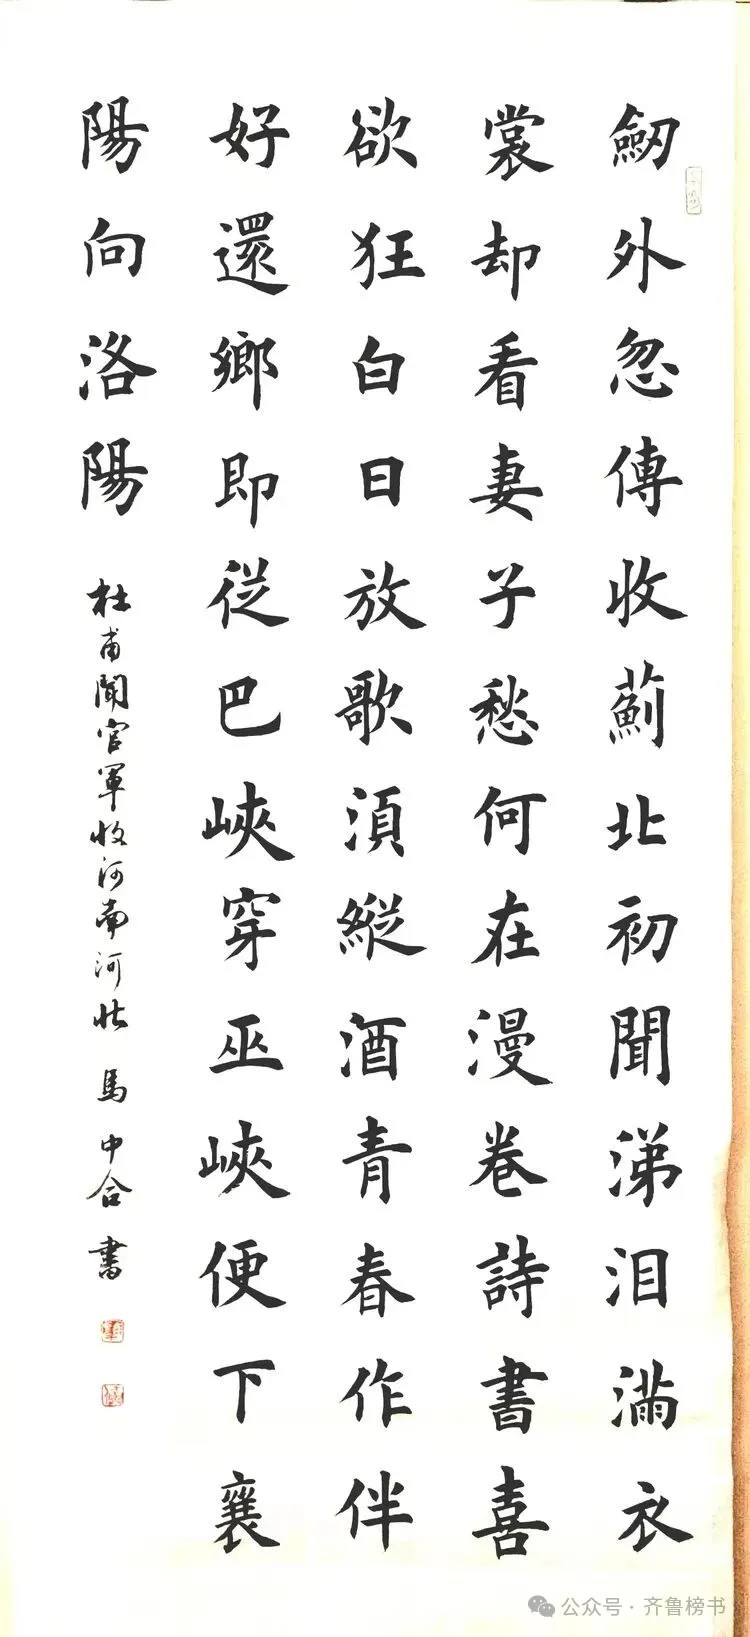 劒外忽傳收薊北初聞涕泪滿衣
裳却看妻子愁何在漫卷詩書喜
欲狂白日放歌須縱酒青春作伴
好還鄉即從巴峽穿巫峽便下襄
陽向洛陽
杜甫聞官軍收河南河北 馬中合書
公众号·齐鲁榜书